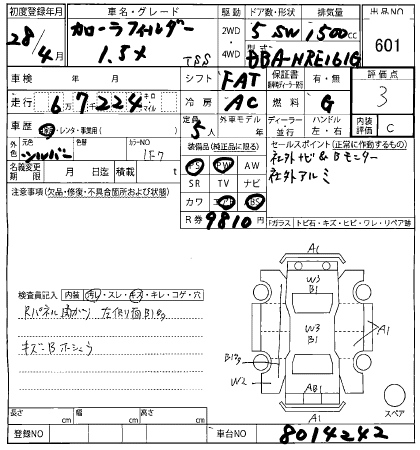 初度登録年月 車名・グレード 駆動 ドア数・形状 排気量 出品NO
28/4月 カローラフィールダー 2WD・4WD 5 SW 1500cc 601
1.5X TSS 型式 DBA-NRE161G
車検 年 月 シフト FAT 保証書 有・無 評価点
走行 6万7千224 キロ マイル 冷房 AC 燃料 G 3
車歴 自家・レンタ・事業用( ) 定員 5人 外車モデル 年 ディーラー 並行 ハンドル 左・右 内装評価 C
外色 元色 シルバー 色替 カラーNO 1F7 装備品(純正品に限る) セールスポイント(正常に作動するもの)
名義変更期限 月 日迄 積載 t PS PW AW 社外ナビ&Bモニター
注意事項(欠品・修復・不具合箇所および状態) SR TV ナビ 社外アルミ
カワ エアB ABS
R券 9810円 「ガラス トビ石・キズ・ヒビ・ワレ・リペア跡
A1
W3
B1
検査員記入 内装 汚れ・スレ・キズ・キレ・コゲ・穴
W3
B1
A1
B1
W2
AB1
A1
スペア
長さ cm 幅 cm 高さ cm
登録NO 車台NO 8014242